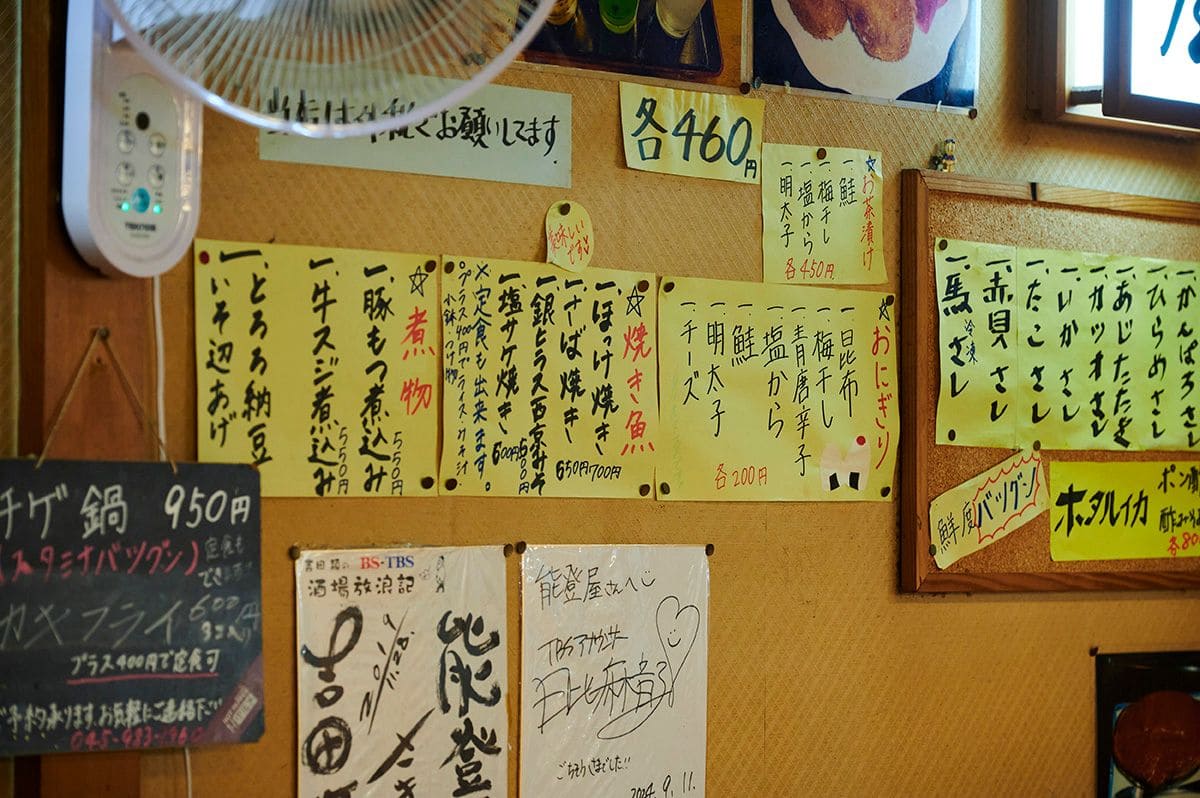 お願いしてます
各460円
☆お茶漬け
一、鮭
一、梅干し
一、塩から
一、明太子
各450円
美味しい
です
☆煮物
一、豚もつ煮込み 550円
一、牛スジ煮込み 550円
一、とろろ納豆
一、いそ辺あげ
☆焼き魚
一、ほっけ焼き 700円
一、さば焼き 650円
一、銀ヒラス西京みそ
一、塩サケ焼き 600円
※定食も出来ます。
プラス400円でライス・みそ汁
小鉢・つけ物
☆おにぎり
一、昆布
一、梅干し
一、青唐辛子
一、塩から
一、鮭
一、明太子
一、チーズ
各200円
一、かんぱちさ
一、ひらめさし
一、カツオさし
一、あじたたき
一、いかさし
一、たこさし
一、赤貝さし
一、馬さし
冷凍
鮮度バツグン
ホタルイカ
各80
チゲ鍋 950円
(スタミナバツグン)
定食も
でき
カキフライ 600円
プラス400円で定食可
ご予約承ります。お気軽にご連絡下
吉田類のBS-TBS
酒場放浪記
能登
吉田
2019
11.28.
能登屋さんへ
TBSアナウンサー
日比麻音子
ごちそうさまでした!!
2024.9.11.